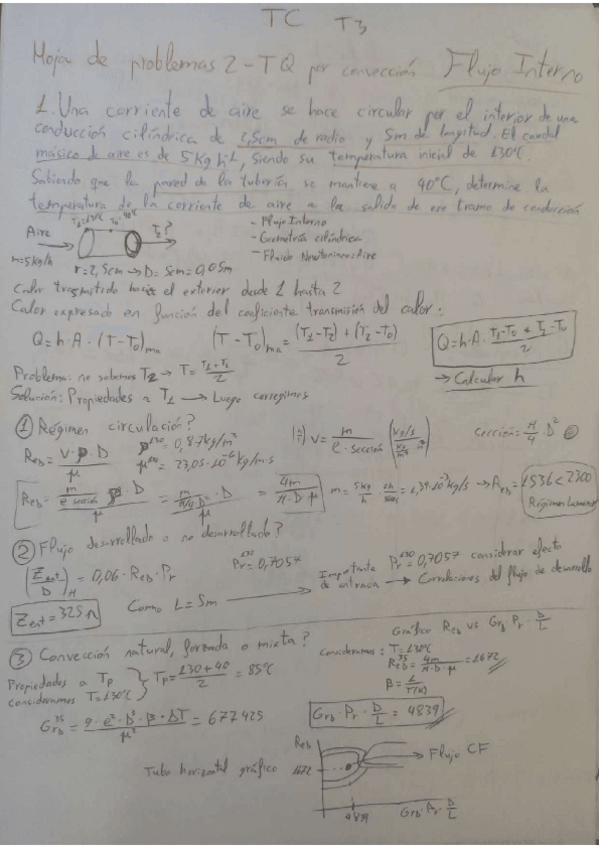 TC T3
Hoja de problemas 2 - TQ por convección Flujo Interno
1. Una corriente de aire se hace circular por el interior de una
conducción cilíndrica de 2,5cm de radio y 5m de longitud. El caudal
másico de aire es de 5Kg h-1, siendo su temperatura inicial de 130ºC.
Sabiendo que la pared de la tubería se mantiene a 40ºC, determine la
temperatura de la corriente de aire a la salida de ese tramo de conducción
Aire T1=130ºC T0=40ºC T2?
m=5kg/h
r=2,5cm → D=5cm=0,05m
- Flujo Interno
- Geometría cilíndrica
- Fluido Newtoniano: Aire
Calor trasmitido hacia el exterior desde 1 hasta 2
Calor expresado en función del coeficiente transmisión del calor:
Q=h·A·(T-T0)ma (T-T0)ma = (T1-T0)+(T2-T0) / 2 Q=h·A· T1-T0+T2-T0 / 2
Problema: no sabemos T2 → T = T1+T2 / 2 → Calcular h
Solución: Propiedades a T1 → Luego corregimos
① Régimen circulación?
ReD = V·ρ·D / μ ρ130=0,87kg/m3 μ130=23,05·10-6 kg/m·s
V = m / ρ·sección (kg/s / kg/m3 m2) Sección= π/4·D2
ReD = m / ρ sección ρ·D / μ = m / π/4 D2 ·D / μ = 4m / π·D·μ m = 5kg / h · 1h / 3600s = 1,39·10-3 kg/s → ReD=1536<2300
Régimen Laminar
② Flujo desarrollado o no desarrollado?
(Zent / D)H = 0,06·ReD·Pr Pr130=0,7057
Zent=325m Como L=5m → Importante Pr130=0,7057 considerar efecto
de entrada → Correlaciones del flujo de desarrollo
③ Convección natural, forzada o mixta?
Gráfico ReD vs GrD Pr · D/L
Propiedades a Tp
consideramos T=130ºC
Tp = 130+40 / 2 = 85ºC
consideramos: T=130ºC
ReD = 4m / π·D·μ = 1672
β = 1 / T(K)
GrD = g·ρ2·D3·β·ΔT / μ2 = 677425 GrD·Pr·D/L = 4839
Tubo horizontal gráfico
ReD
1672
Flujo CF
4839 GrD·Pr·D/L